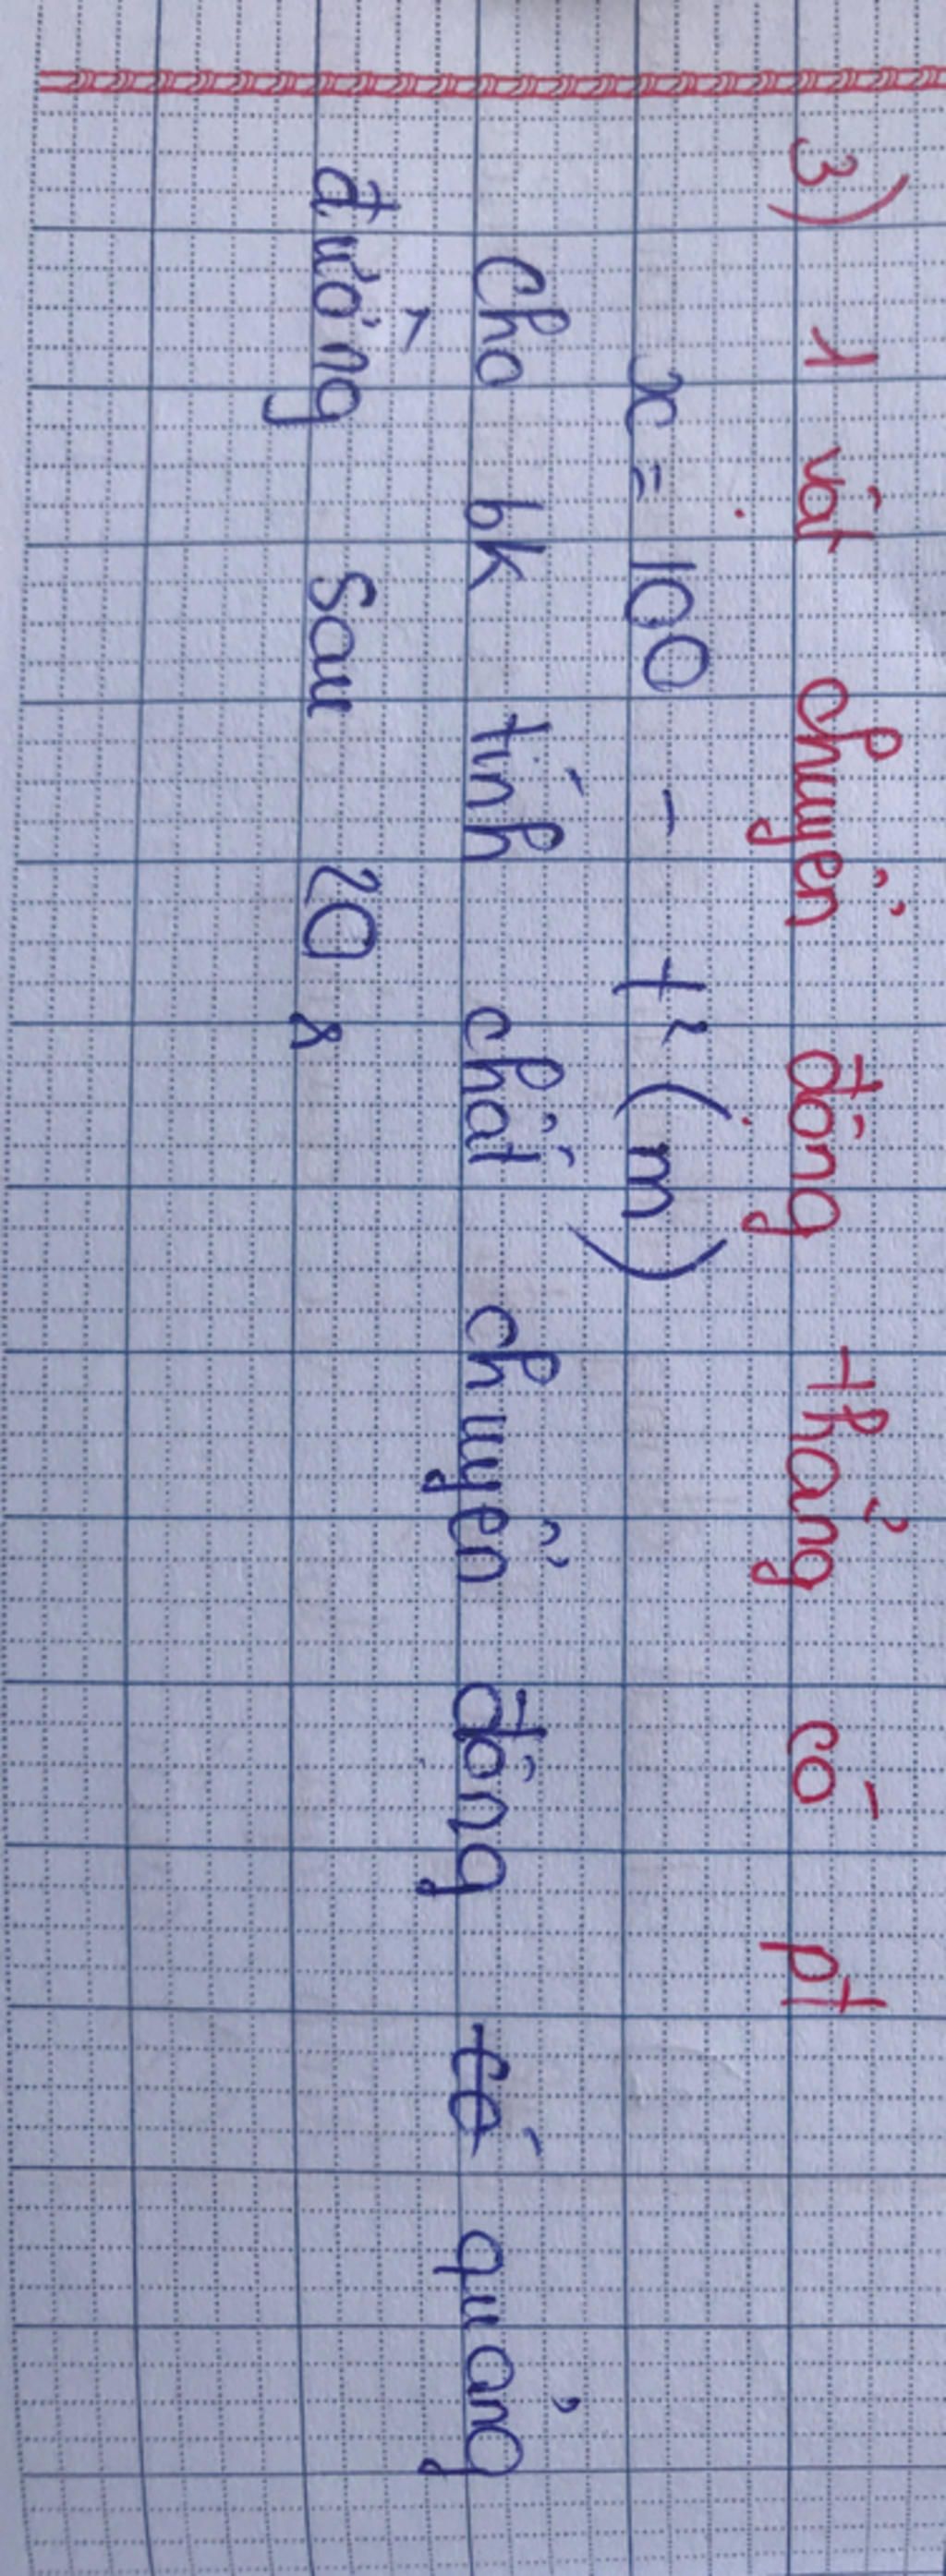 3) 1 vật chuyển động thẳng có pt
x = 100 - t² (m)
Cho bk tính chất chuyển động quảng
đường sau 20 s